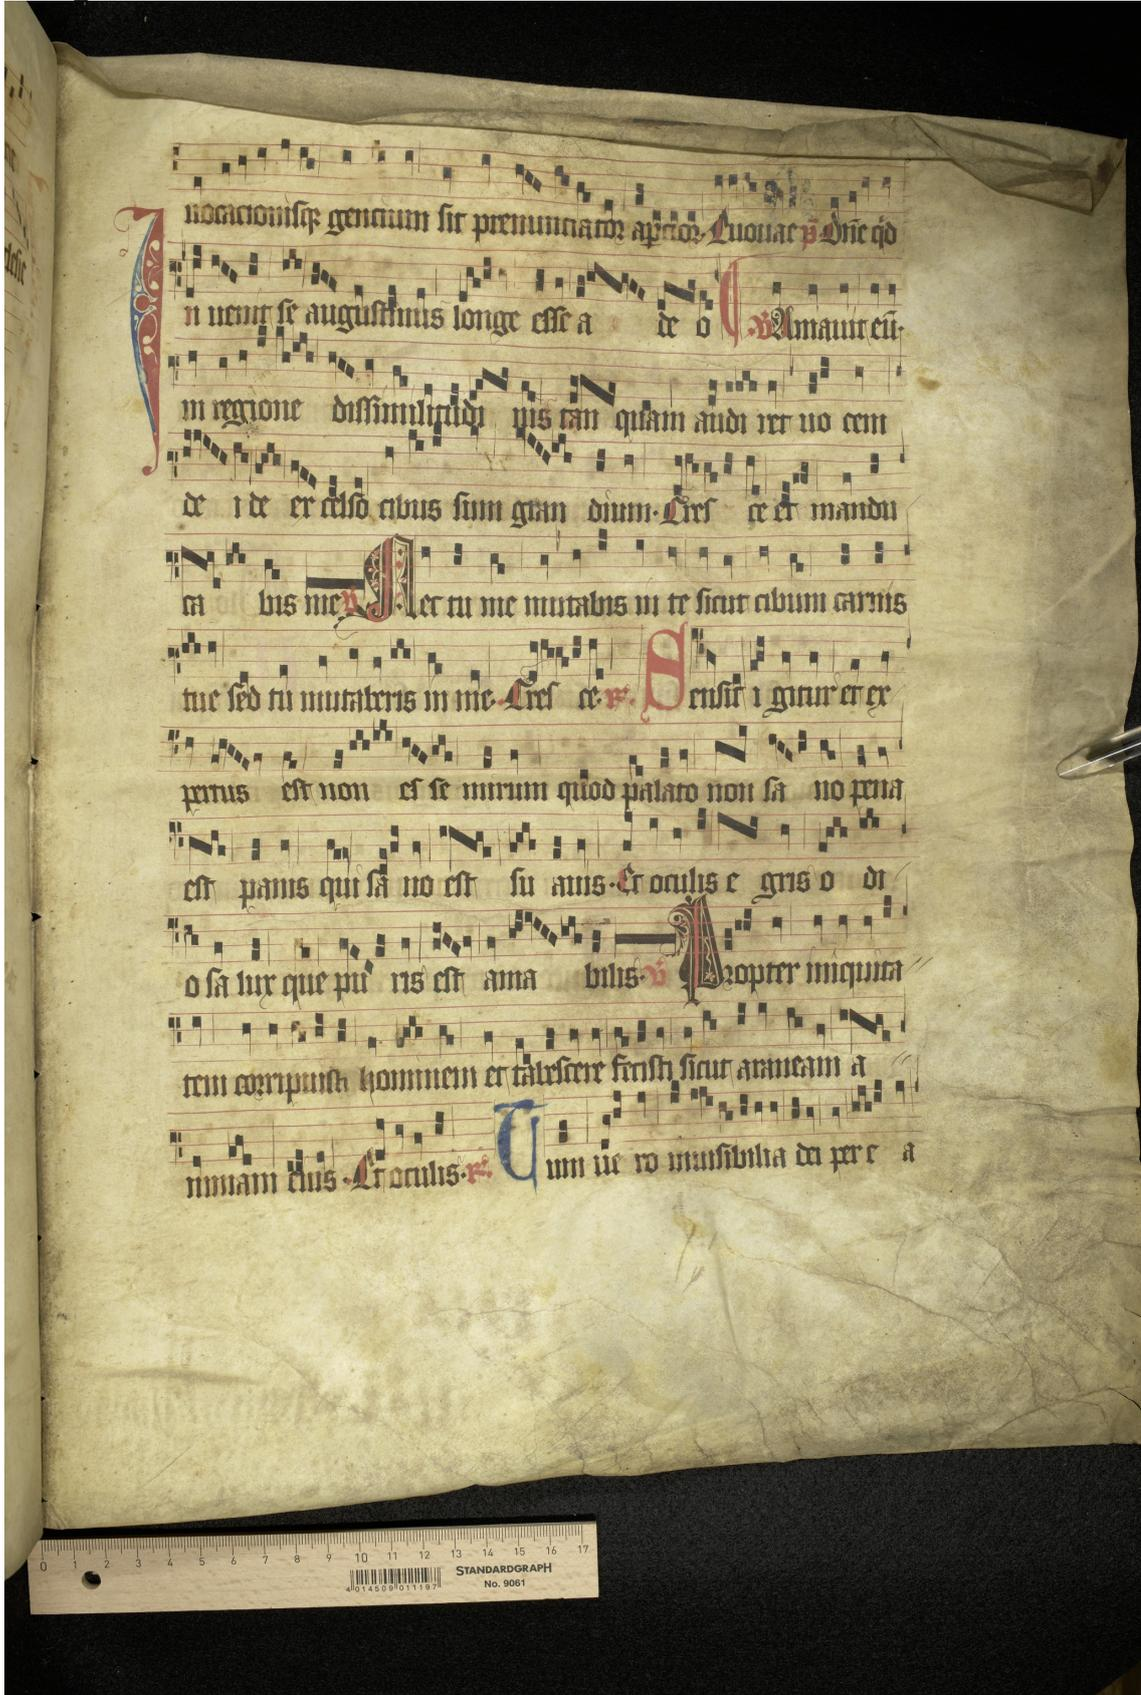 uocacionisq; gencium sit prenunciator apcior. Euouae p̄s Dn̄e q̇d
In uenit se augustinus longe esse a de o v̄ Amauit eū.
in regione dissimilitudi nis tan quam audi ret uo cem
de i de ex celso cibus sum gran dium. Cres ce et mandu
ca bis me v̄ Nec tu me mutabis in te sicut cibum carnis
tue sed tu mutaberis in me. Cres ce. R̄. Sensit i gitur et ex
pertus est non es se mirum quod palato non sa no pena
est panis qui sa no est su auis. Et oculis e gris o di
o sa lux que pu ris est ama bilis. v̄ Propter iniquita
tem corripuisti hominem et tabescere fecisti sicut araneam a
nimam eius. Et oculis. R̄. Cum ue ro inuisibilia dei per c a
0 1 2 3 4 5 6 7 8 9 10 11 12 13 14 15 16 17
STANDARDGRAPH
No. 9061
4 014509 011197